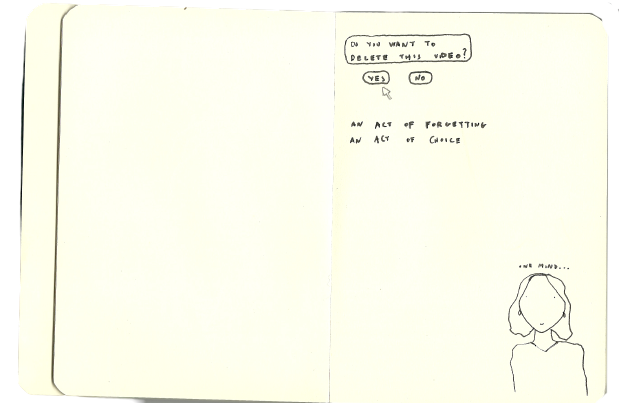 DO YOU WANT TO
DELETE THIS VIDEO?
YES NO
AN ACT OF FORGETTING
AN ACT OF CHOICE
ONE MIND...